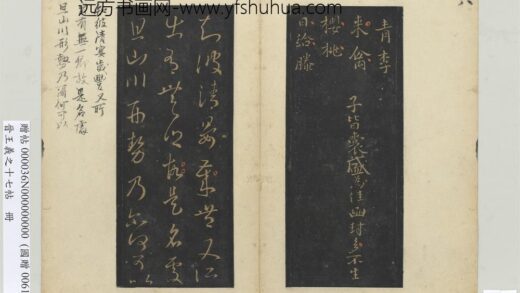 远方書画网 - www.yfshuhua.com
青李
來禽
櫻桃
日給滕
子皆囊盛為佳函封多不生
知彼清晏歲豐又所
出有無一鄉故是名處
且山川形勢乃爾何可以
彼清宴歲豐又所
有無一鄉故是名處
且山川形勢乃爾何可以
贈帖 000036N000000000 (國贈 0061
晉王羲之十七帖 冊